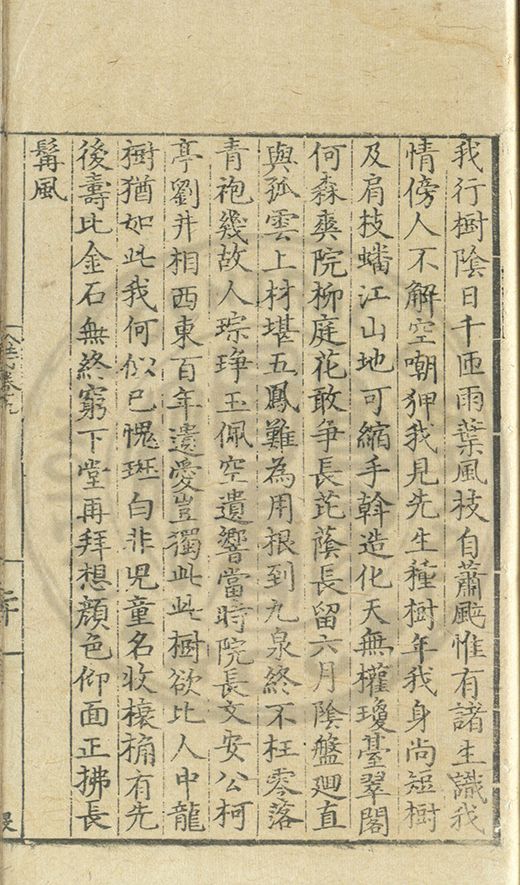 我行樹陰日千匝雨葉風枝自蕭颼惟有諸生識我
情傍人不解空嘲狎我見先生種樹年我身尚短樹
及肩枝蟠江山地可縮手斡造化天無權瓊臺翠閣
何森爽院柳庭花敢爭長芘蔭長留六月陰盤廻直
與孤雲上材堪五鳳難為用根到九泉終不枉零落
青袍幾故人琮琤玉佩空遺響當時院長文安公柯
亭劉井相西東百年遺愛豈獨此此樹欲比人中龍
樹猶如此我何似已愧斑白非児童名收榱桷有先
後壽比金石無終窮下堂再拜想顏色仰面正拂長
髯風